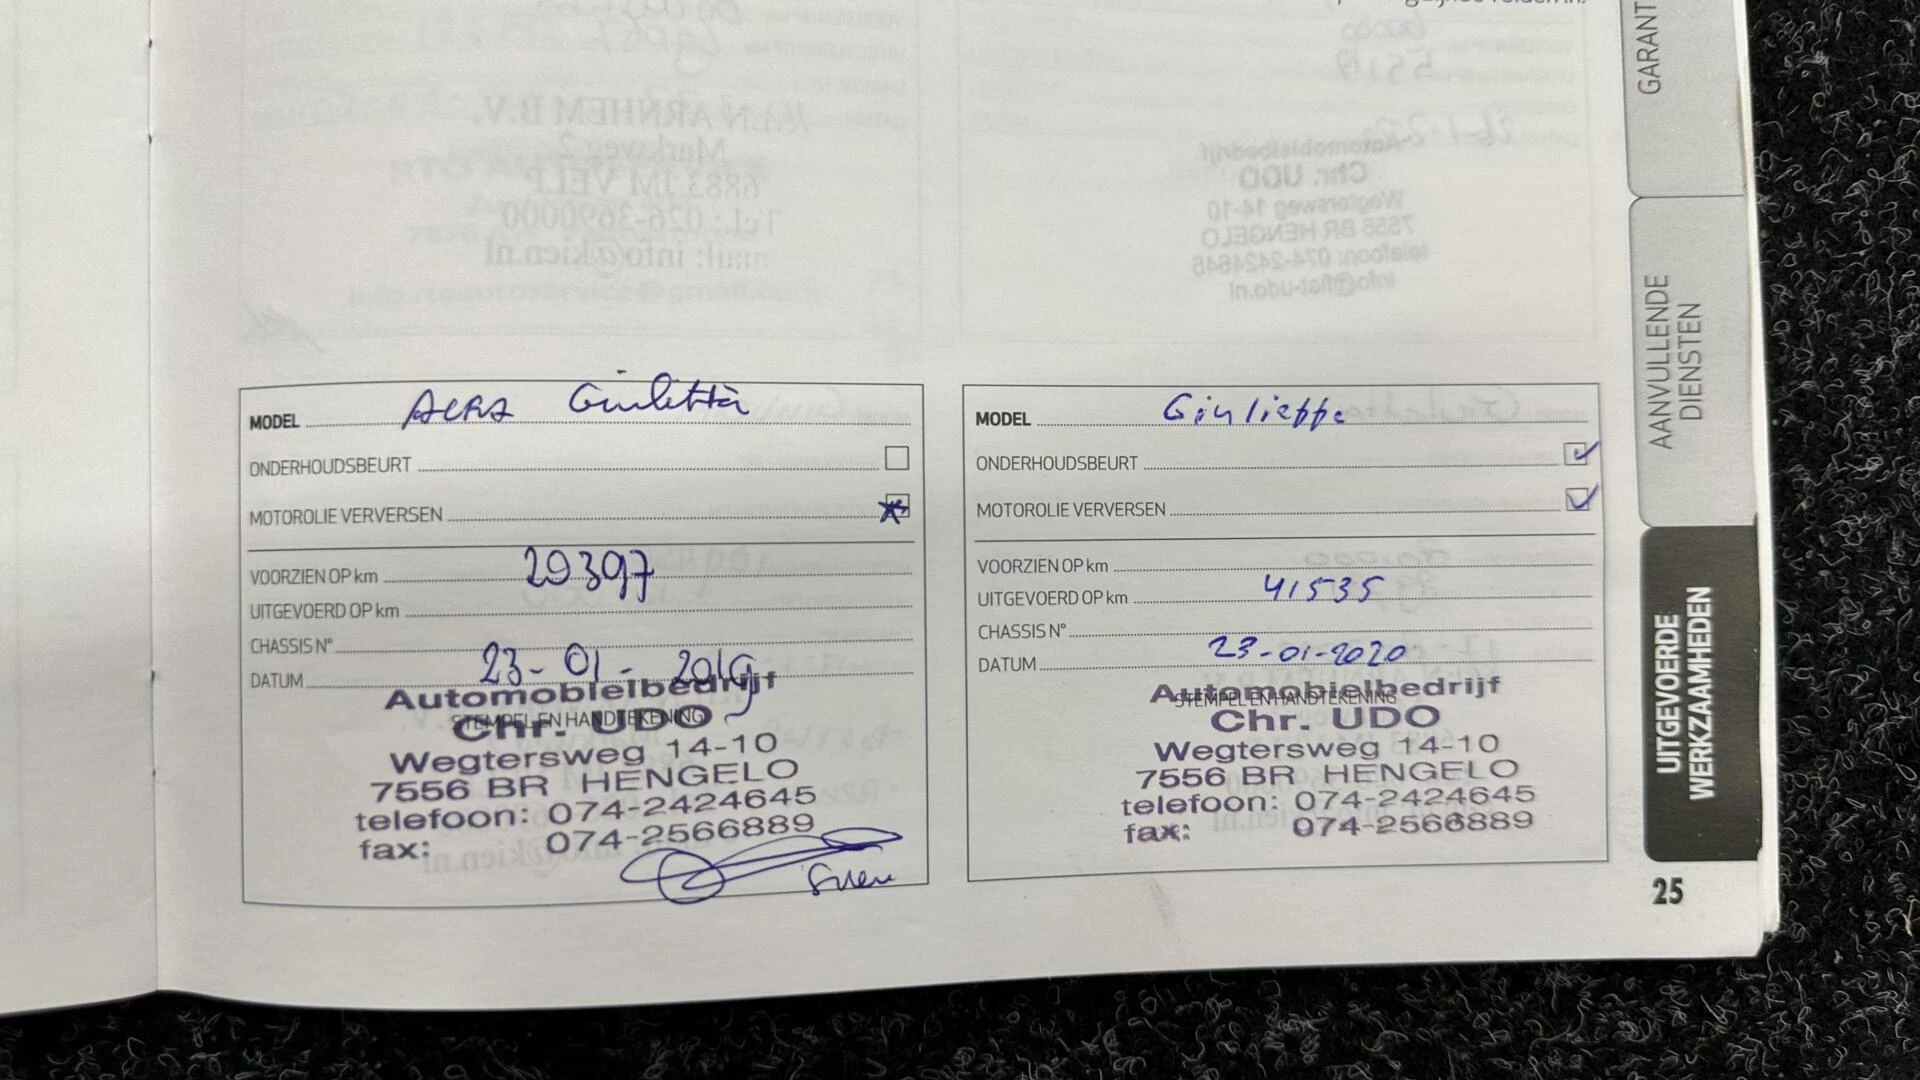 GARANT
AANVULLENDE
DIENSTEN
UITGEVOERDE
WERKZAAMHEDEN
MODEL Alfa Giulietta
ONDERHOUDSBEURT
MOTOROLIE VERVERSEN
VOORZIEN OP km 29397
UITGEVOERD OP km
CHASSIS N°
DATUM 23-01-2019
STEMPEL EN HANDTEKENING
Automobielbedrijf
Chr. UDO
Wegtersweg 14-10
7556 BR HENGELO
telefoon: 074-2424645
fax: 074-2566889
MODEL Giulieppe
ONDERHOUDSBEURT
MOTOROLIE VERVERSEN
VOORZIEN OP km
UITGEVOERD OP km 41535
CHASSIS N°
DATUM 23-01-2020
STEMPEL EN HANDTEKENING
Automobielbedrijf
Chr. UDO
Wegtersweg 14-10
7556 BR HENGELO
telefoon: 074-2424645
fax: 074-2566889
25